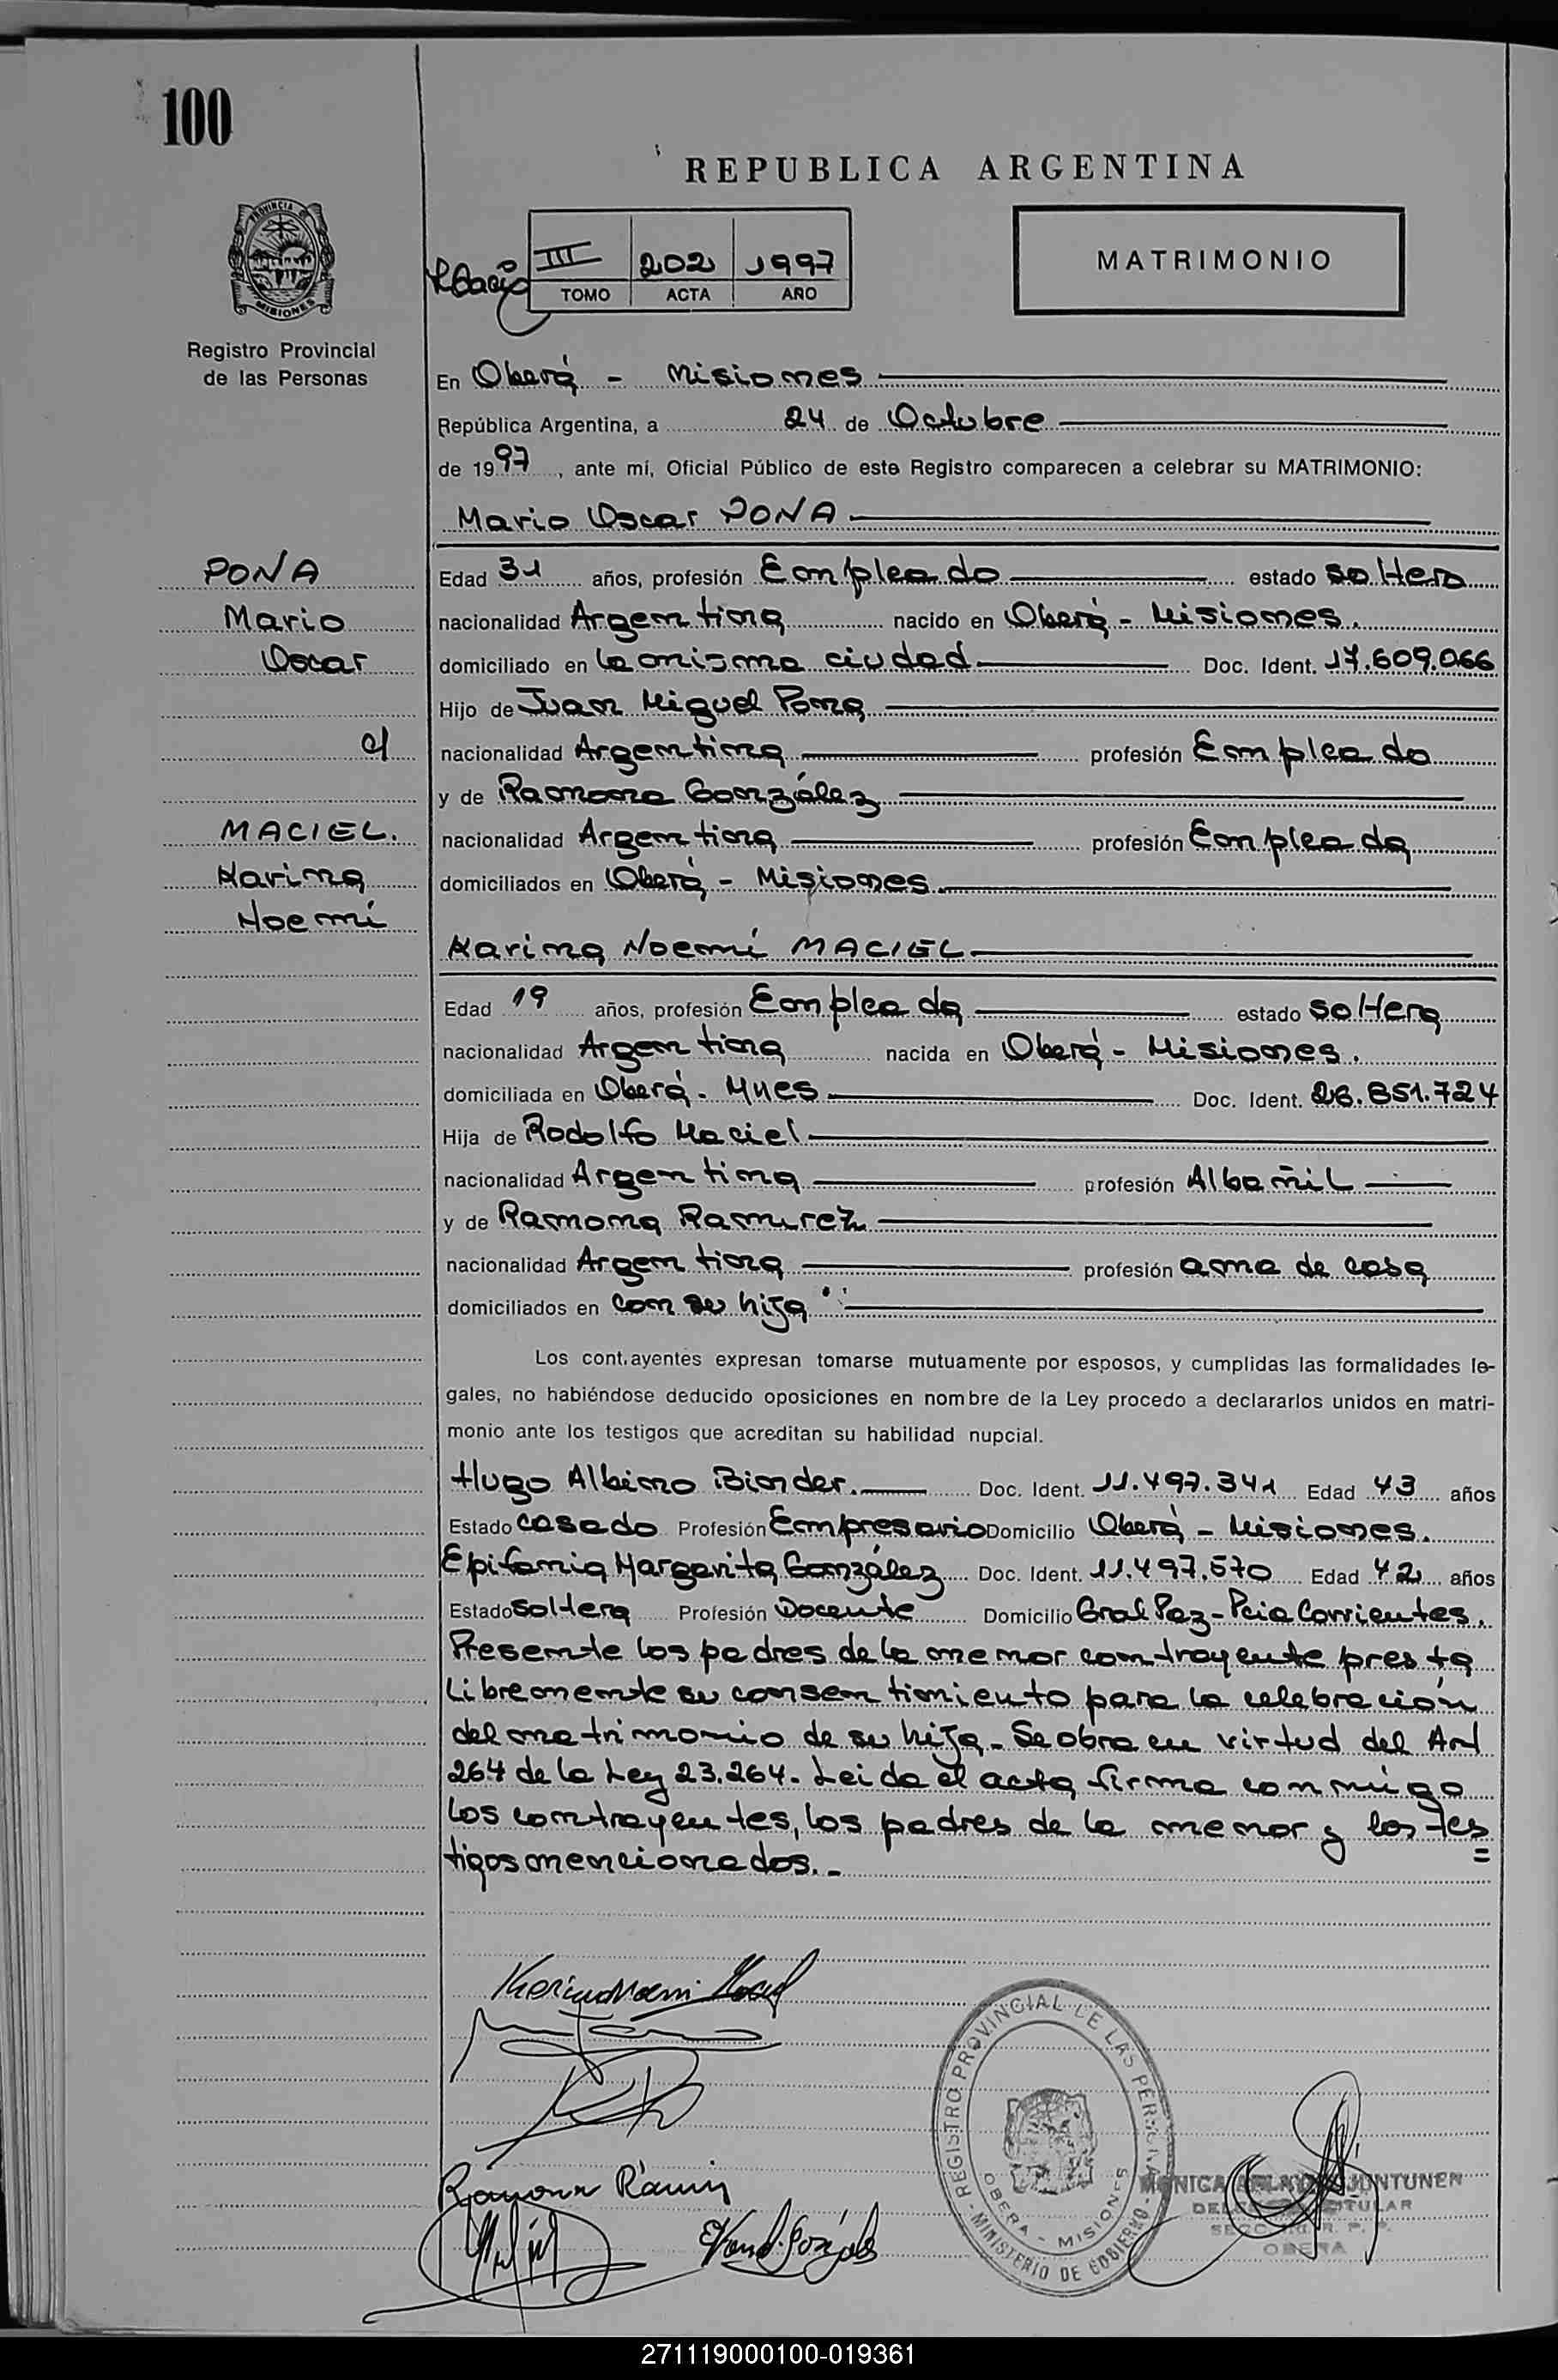 100
REPUBLICA ARGENTINA
PROVINCIA DE
MISIONES
Registro Provincial
de las Personas
III 202 1997
TOMO ACTA AÑO
MATRIMONIO
En Oberá - Misiones
República Argentina, a 24 de Octubre
de 1997, ante mí, Oficial Público de este Registro comparecen a celebrar su MATRIMONIO:
Mario Oscar PONA
PONA
Mario
Oscar
c/
MACIEL.
Karina
Noemí
Edad 31 años, profesión Empleado estado soltero
nacionalidad Argentina nacido en Oberá - Misiones.
domiciliado en la misma ciudad Doc. Ident. 17.609.066
Hijo de Juan Miguel Pona
nacionalidad Argentina profesión Empleado
y de Ramona González
nacionalidad Argentina profesión Empleada
domiciliados en Oberá - Misiones
Karina Noemí MACIEL
Edad 19 años, profesión Empleada estado soltera
nacionalidad Argentina nacida en Oberá - Misiones.
domiciliada en Oberá - Mnes Doc. Ident. 26.851.724
Hija de Rodolfo Maciel
nacionalidad Argentina profesión Albañil
y de Ramona Ramirez
nacionalidad Argentina profesión ama de casa
domiciliados en con su hija
Los contrayentes expresan tomarse mutuamente por esposos, y cumplidas las formalidades le-
gales, no habiéndose deducido oposiciones en nombre de la Ley procedo a declararlos unidos en matri-
monio ante los testigos que acreditan su habilidad nupcial.
Hugo Albino Binder. Doc. Ident. 11.497.341 Edad 43 años
Estado casado Profesión Empresario Domicilio Oberá - Misiones.
Epifania Margarita González Doc. Ident. 11.497.570 Edad 42 años
Estado soltera Profesión Docente Domicilio Gral Paz - Pcia Corrientes.
Presente los padres de la menor contrayente presta
libremente su consentimiento para la celebración
del matrimonio de su hija - Se obra en virtud del Art
264 de la Ley 23.264. Leida el acta firma conmigo
los contrayentes, los padres de la menor y los tes
tigos mencionados. -
Karina Noemi Maciel
Ramona Ramirez
REGISTRO PROVINCIAL DE LAS PERSONAS
OBERA - MISIONES
MINISTERIO DE GOBIERNO
MONICA JUNTUNEN
TITULAR
OBERA
271119000100-019361